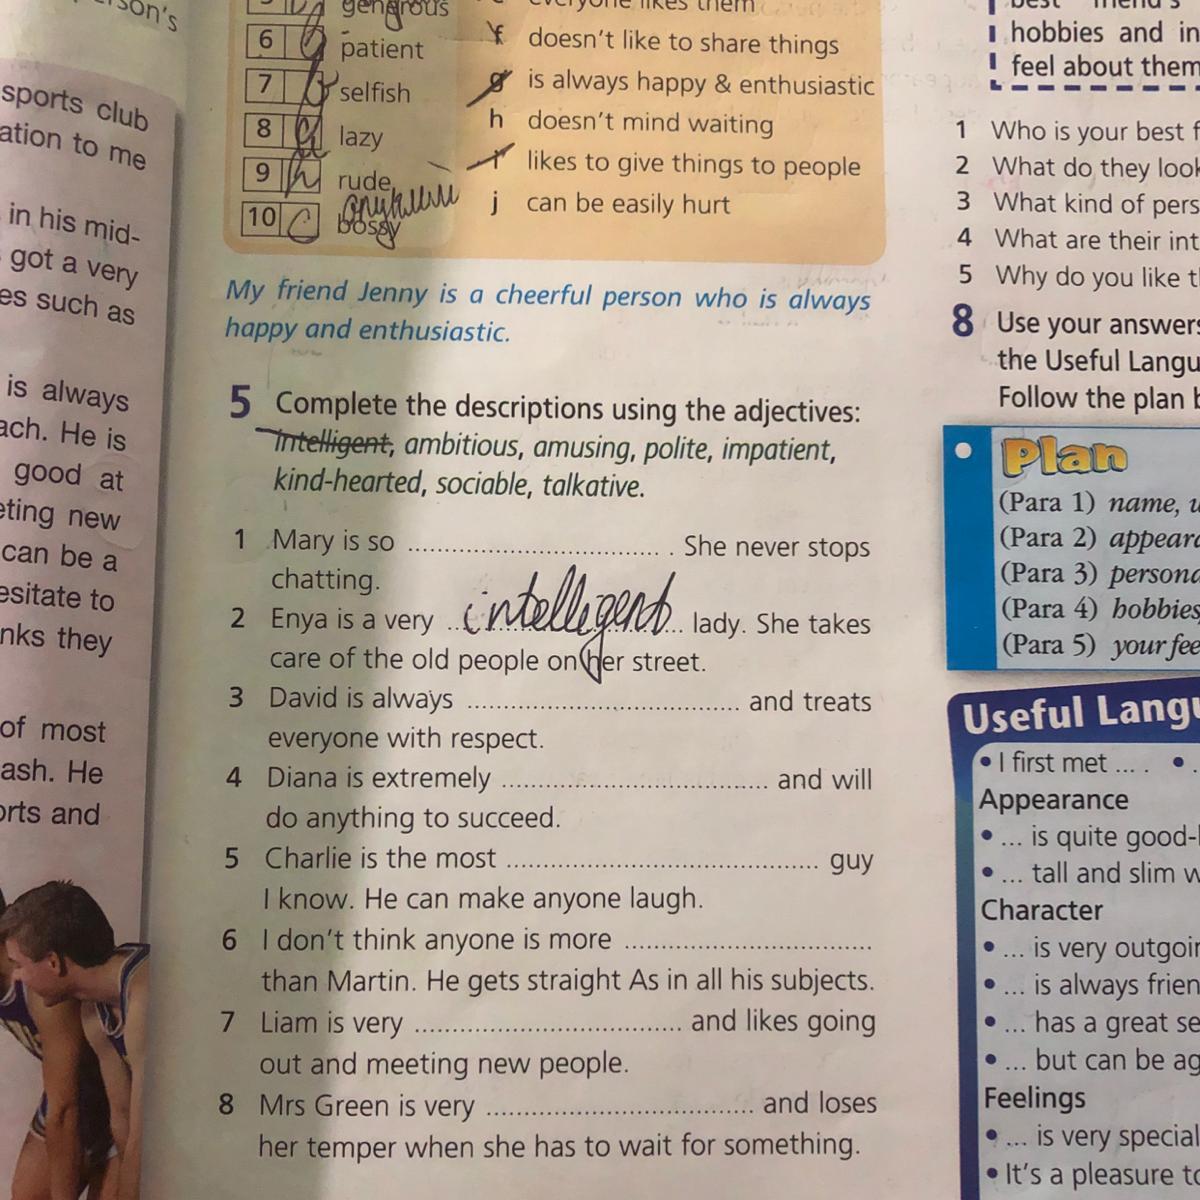 son's
sports club
ation to me
in his mid-
got a very
es such as
is always
ach. He is
good at
eting new
can be a
esitate to
nks they
of most
ash. He
orts and
generous
6 patient
7 selfish
8 lazy
9 h rude
10 c bossy
everyone likes them
f doesn't like to share things
g is always happy & enthusiastic
h doesn't mind waiting
i likes to give things to people
j can be easily hurt
My friend Jenny is a cheerful person who is always
happy and enthusiastic.
5 Complete the descriptions using the adjectives:
intelligent, ambitious, amusing, polite, impatient,
kind-hearted, sociable, talkative.
1 Mary is so .................................... . She never stops
chatting.
2 Enya is a very intelligent lady. She takes
care of the old people on her street.
3 David is always .................................... and treats
everyone with respect.
4 Diana is extremely .................................... and will
do anything to succeed.
5 Charlie is the most .................................... guy
I know. He can make anyone laugh.
6 I don't think anyone is more ....................................
than Martin. He gets straight As in all his subjects.
7 Liam is very .................................... and likes going
out and meeting new people.
8 Mrs Green is very .................................... and loses
her temper when she has to wait for something.
best friend's
hobbies and in
feel about them
1 Who is your best f
2 What do they look
3 What kind of pers
4 What are their int
5 Why do you like th
8 Use your answers
the Useful Langu
Follow the plan b
Plan
(Para 1) name, u
(Para 2) appeara
(Para 3) persona
(Para 4) hobbies
(Para 5) your fee
Useful Langu
• I first met ... . • .
Appearance
• ... is quite good-l
• ... tall and slim w
Character
• ... is very outgoin
• ... is always frien
• ... has a great se
• ... but can be ag
Feelings
• ... is very special
• It's a pleasure to